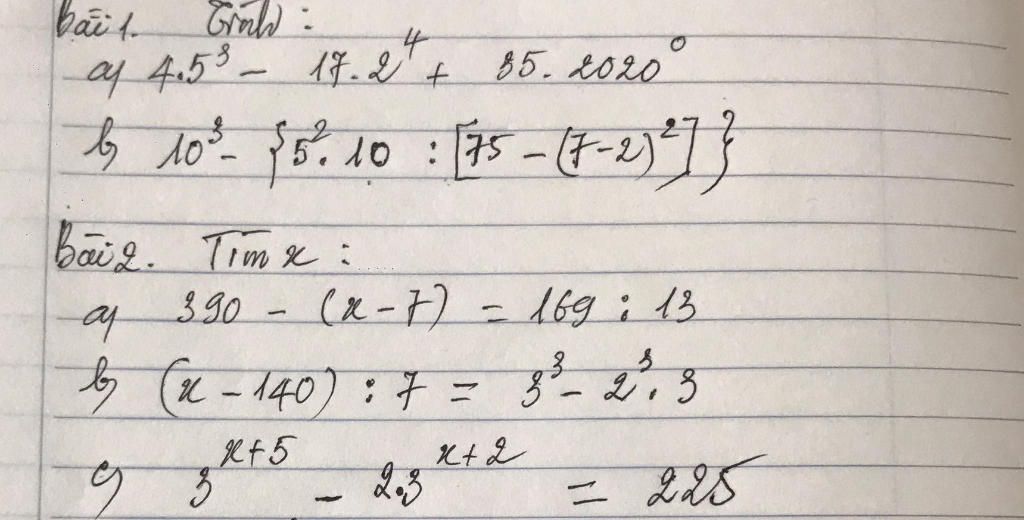 Bài 1. Tính :
a) 4.5³ – 17.2⁴ + 35.2020⁰
b) 10³ – {5².10 : [75 – (7–2)²]}
Bài 2. Tìm x :
a) 390 – (x – 7) = 169 : 13
b) (x – 140) : 7 = 3³ – 2³.3
c) 3^(x+5) – 2.3^(x+2) = 225